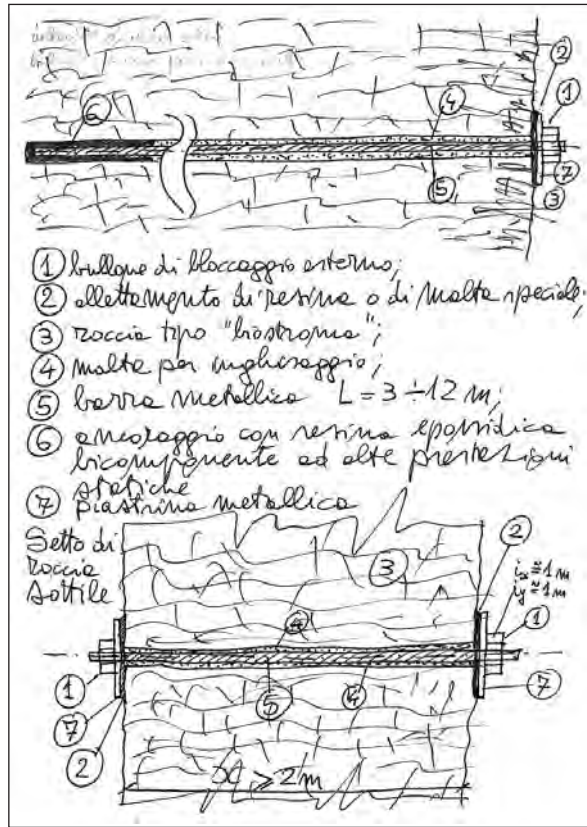 6
4
5
2
1
7
3
1 bullone di bloccaggio esterno;
2 allettamento di resina o di malta speciale;
3 roccia tipo "biostroma";
4 malta per inghisaggio;
5 barra metallica L = 3 ÷ 12 m;
6 ancoraggio con resina epossidica
bicomponente ad alte prestazioni
statiche
7 piastrina metallica
Setto di
roccia
sottile
3
2
ix ≅ 1 m
iy ≅ 1 m
1
4
1
5
4
7
7
2
≥ 2 m